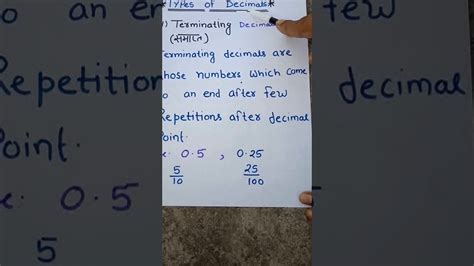 *Types of Decimals*
) Terminating Decimal
(समाप्त)
erminating decimals are
hose numbers which come
o an end after few
Repetitions after decimal
Point.
e. 0.5 , 0.25
5/10 25/100